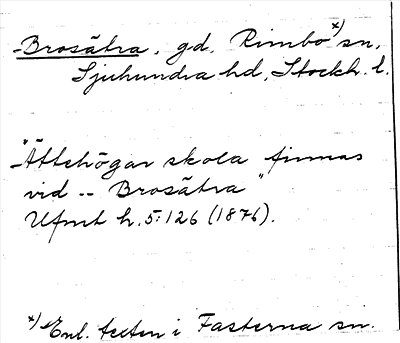 Brosätra, gd, Rimbo x) sn,
Sjuhundra hd, Stockh. l.
"Ättehögar skola finnas
vid -- Brosätra"
Ufmt h. 5: 126 (1876).
x) Enl. texten i Fasterna sn.